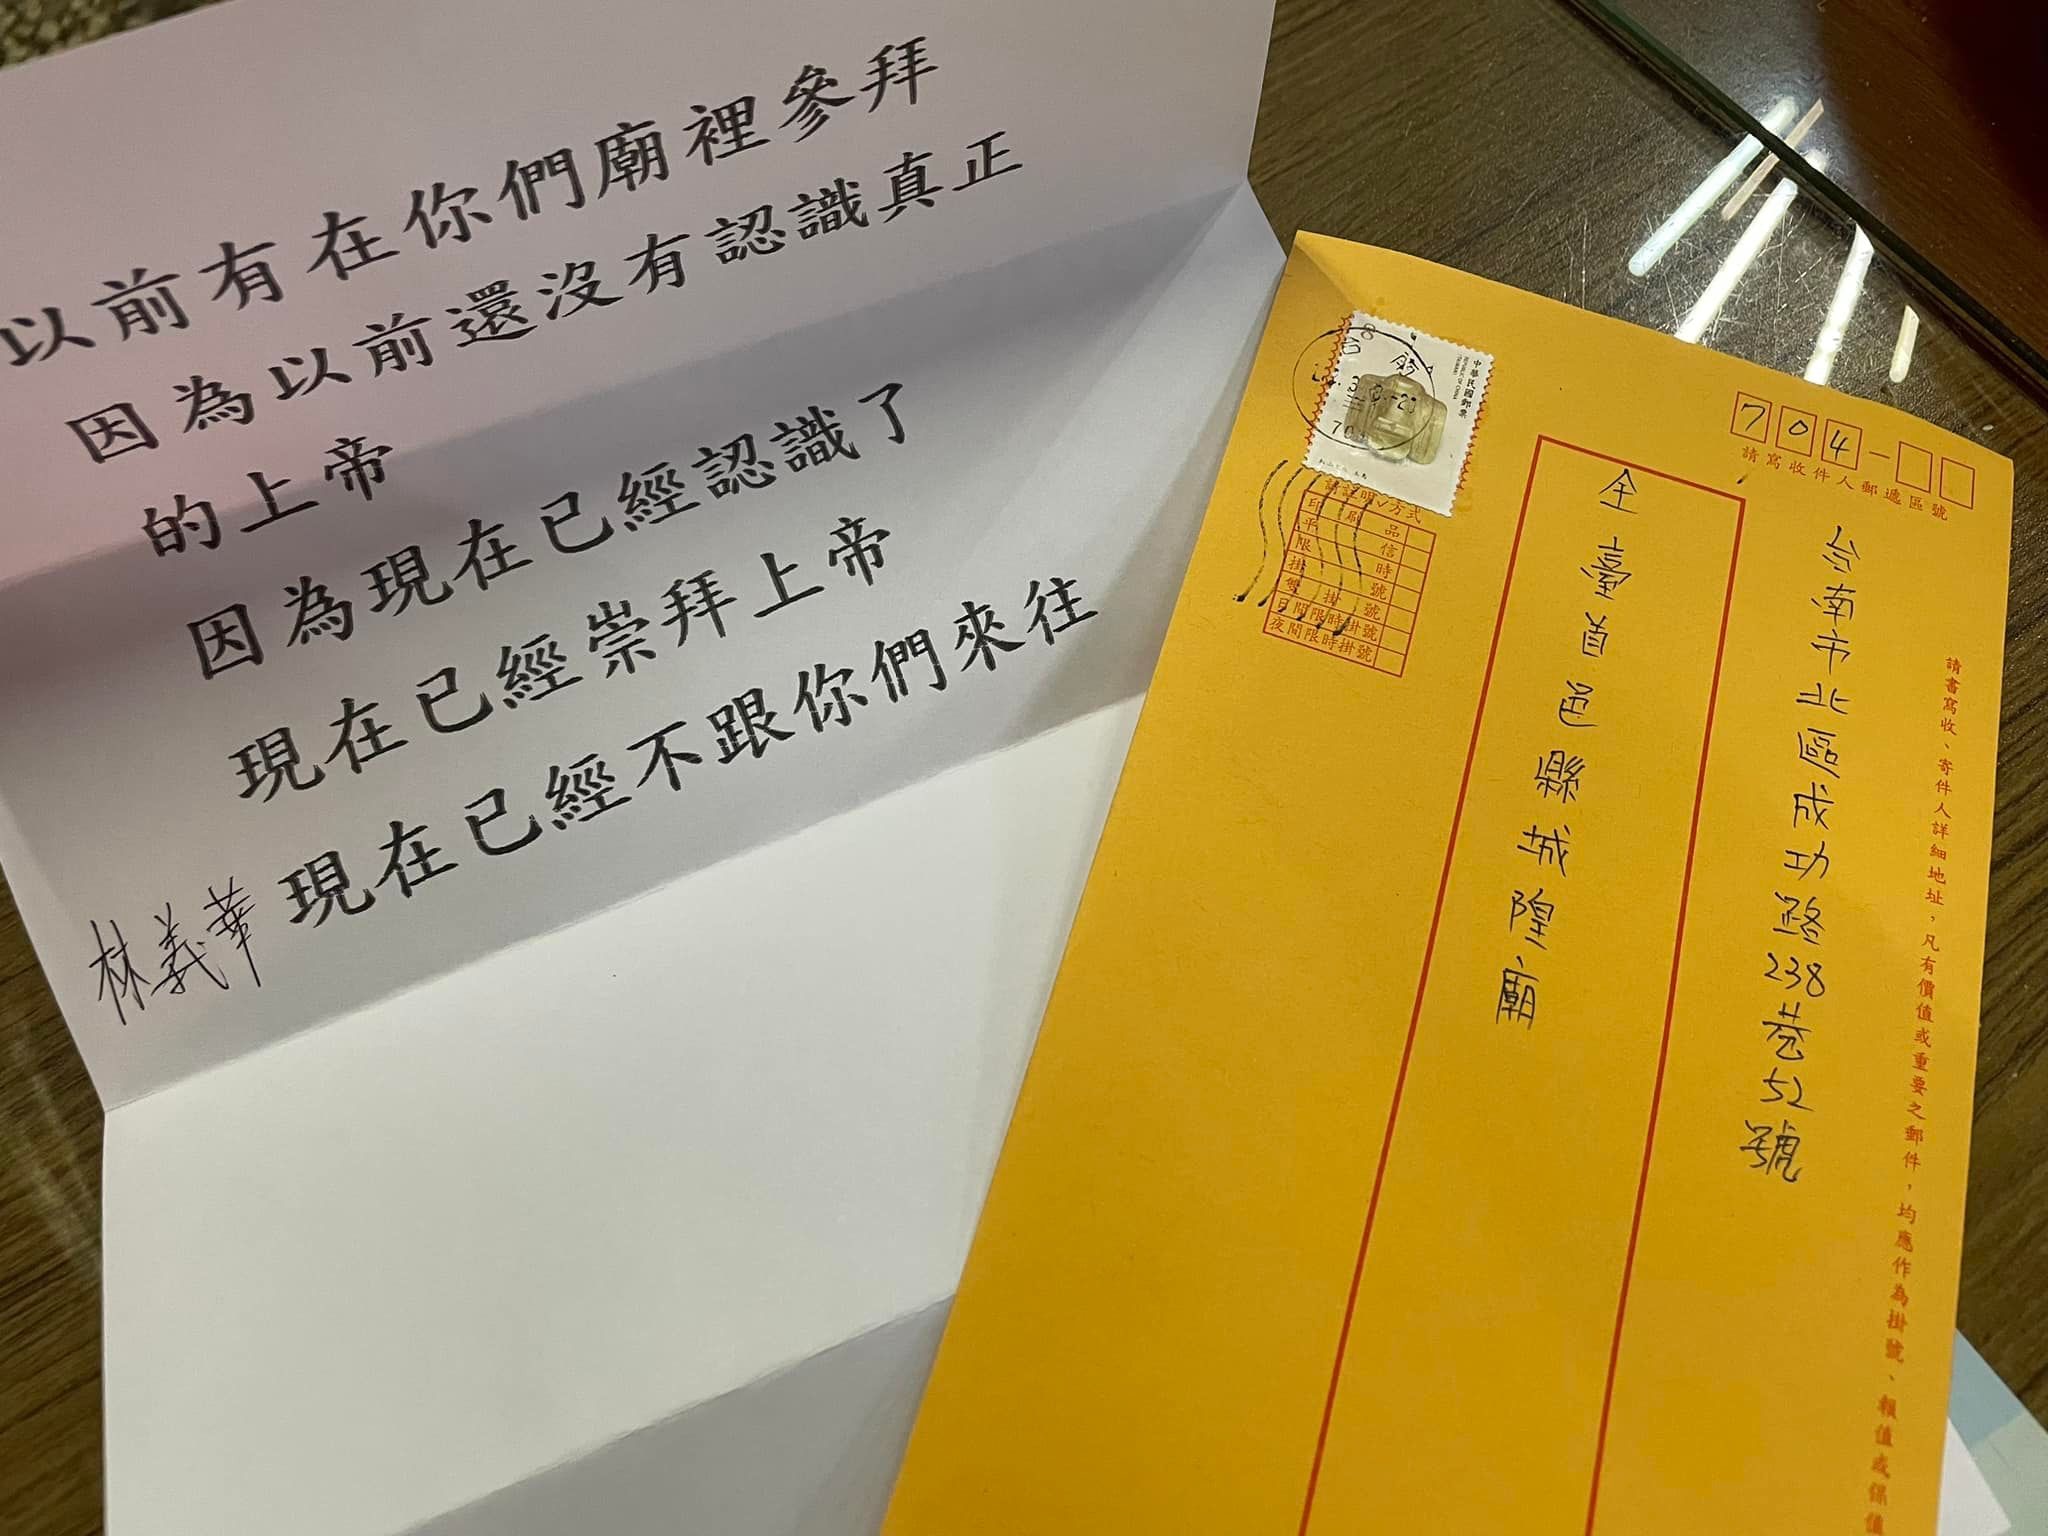 以前有在你們廟裡參拜
因為以前還沒有認識真正
的上帝
因為現在已經認識了
現在已經崇拜上帝
現在已經不跟你們來往
林義華
中華民國郵票
REPUBLIC OF CHINA
(TAIWAN)
8
704-
請寫收件人郵遞區號
印刷品
平信
限時
掛號
雙掛號
日間限時掛號
夜間限時掛號
全臺首邑縣城隍廟
台南市北區成功路238巷52號
請書寫收、寄件人詳細地址,凡有價值或重要之郵件,均應作為掛號、報值或保值